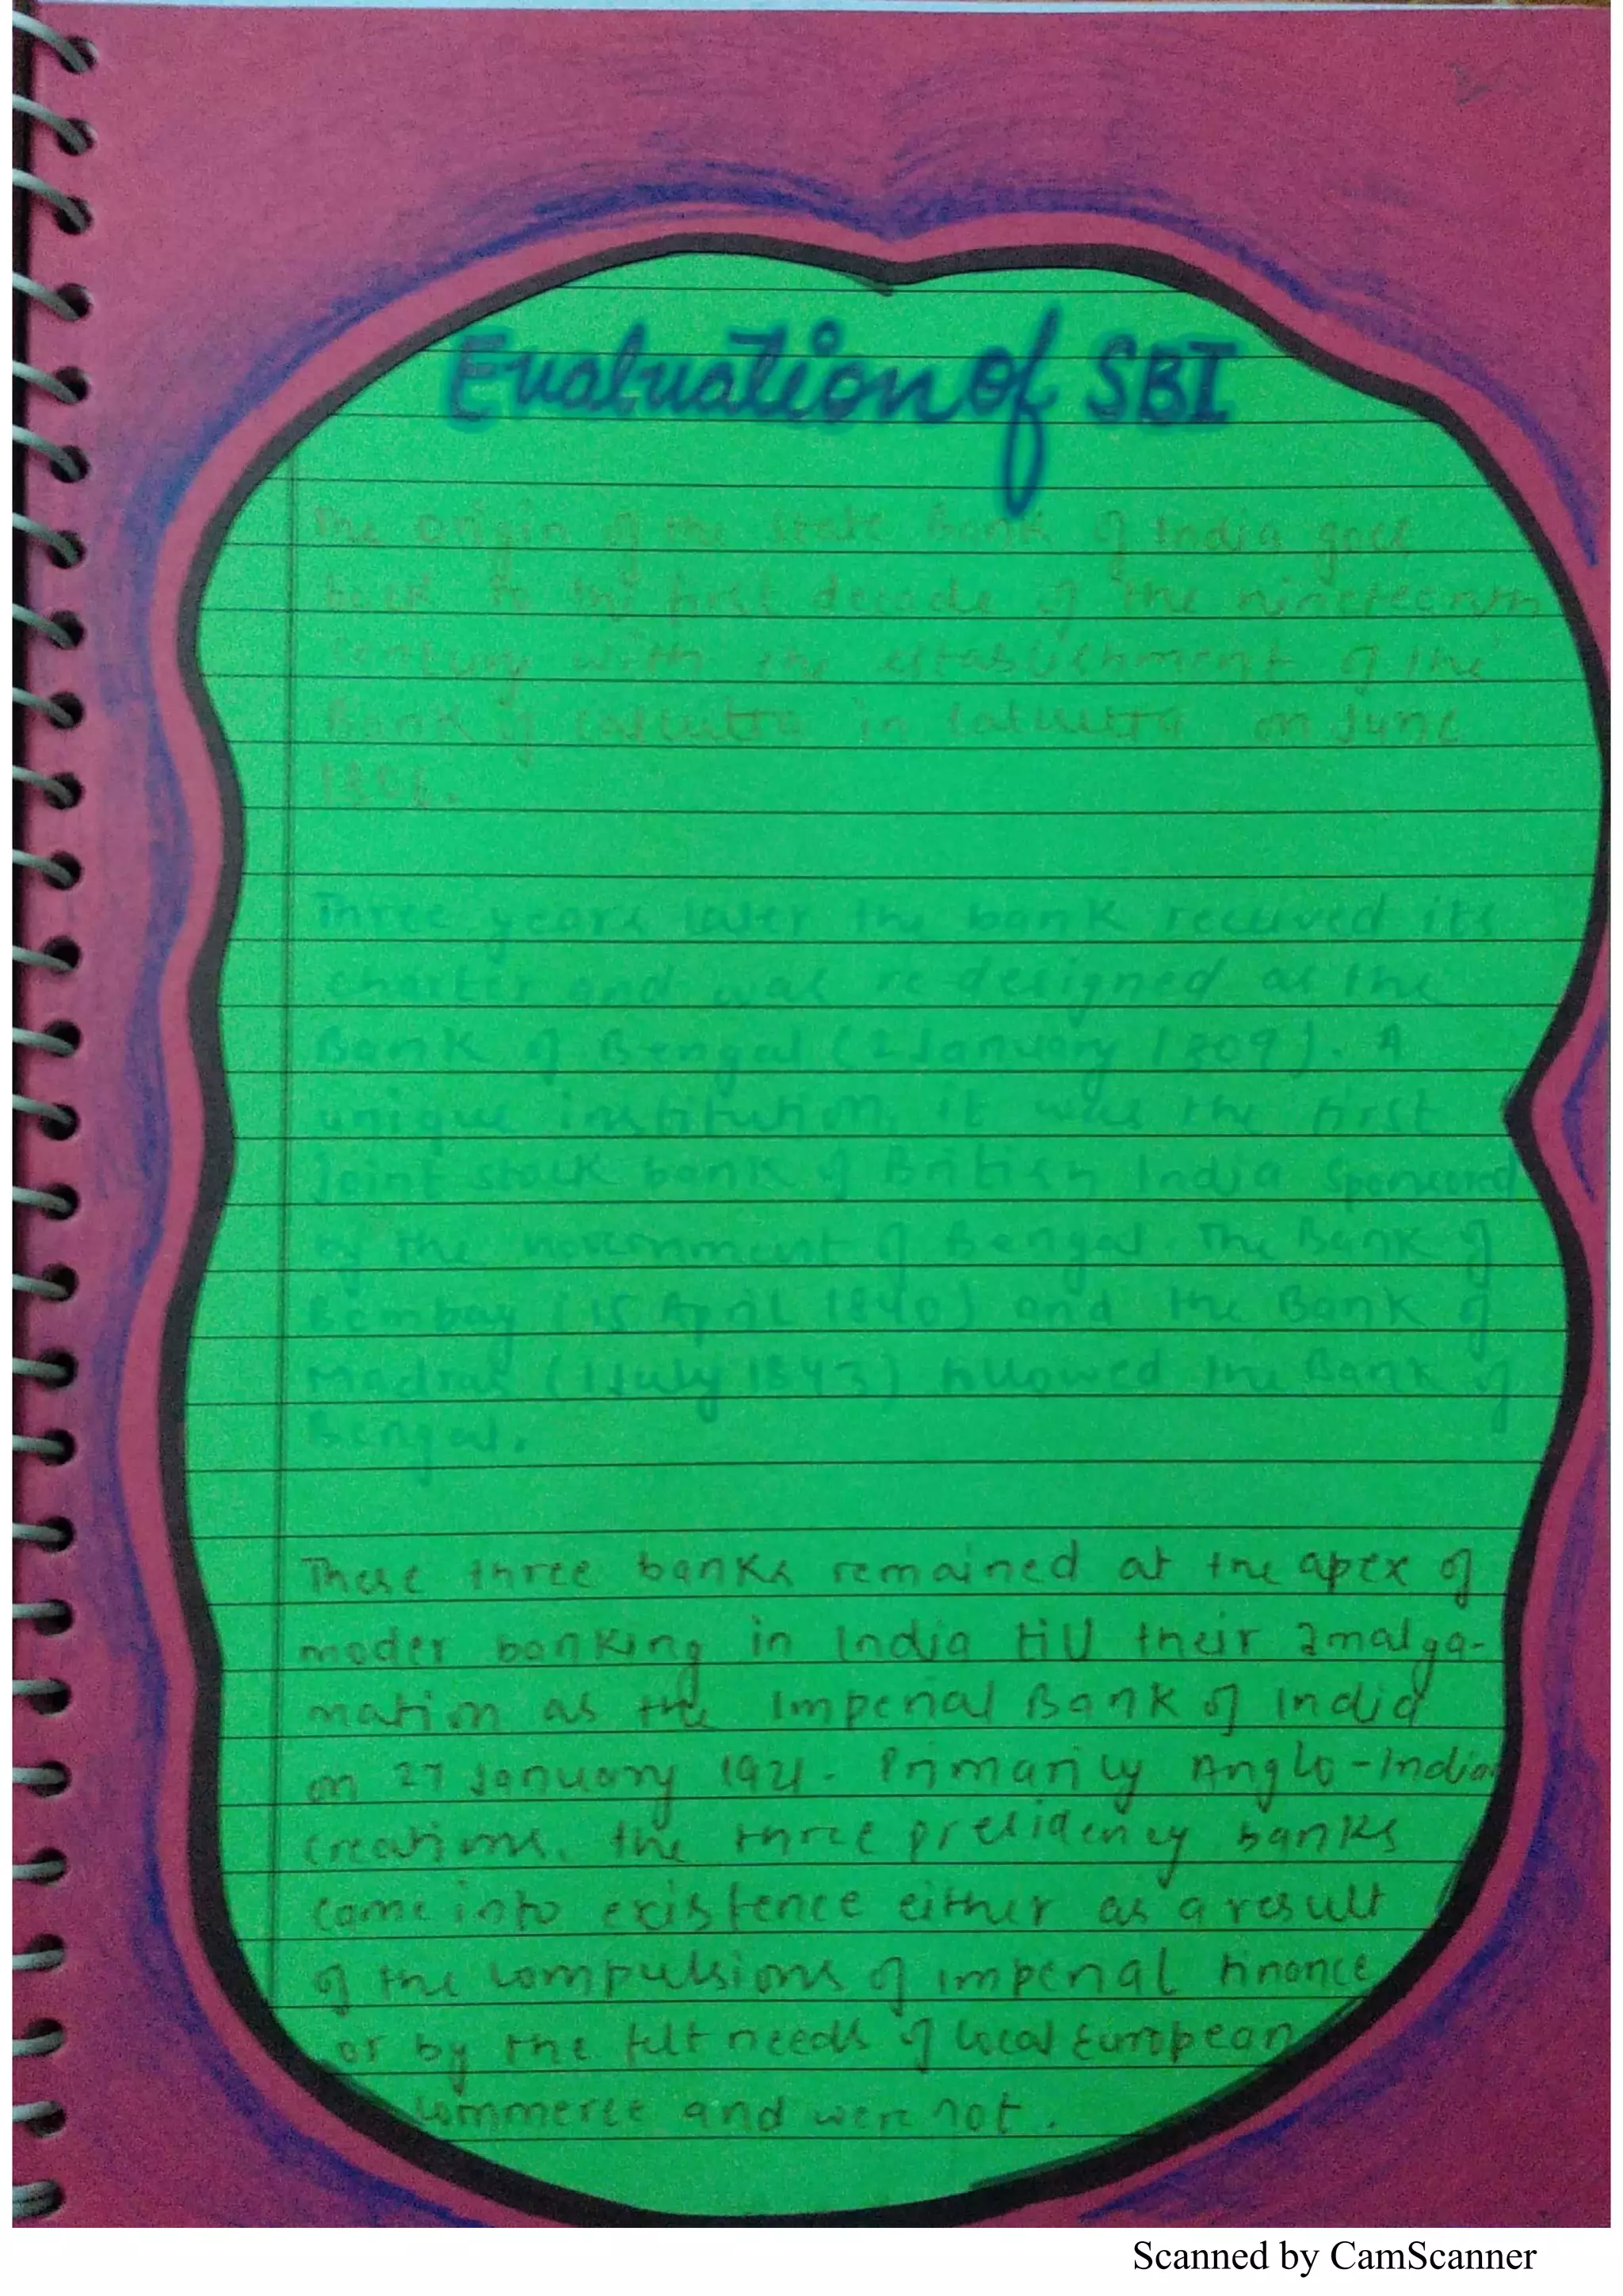 Evaluation of SBI
The origin of the State Bank of India goes
back to the first decade of the nineteenth
century with the establishment of the
Bank of Calcutta in Calcutta on June
1806.
Three years later the bank received its
charter and was re-designed as the
Bank of Bengal (2 January 1809). A
unique institution, it was the first
joint stock bank of British India sponsored
by the Government of Bengal. The Bank of
Bombay (15 April 1840) and the Bank of
Madras (1 July 1843) followed the Bank of
Bengal.
These three banks remained at the apex of
moder banking in India till their amalga-
mation as the Imperial Bank of India
on 27 January 1921. Primarily Anglo-Indian
creations, the three presidency banks
came into existence either as a result
of the compulsions of imperial finance
or by the felt needs of local European
commerce and were not.
Scanned by CamScanner